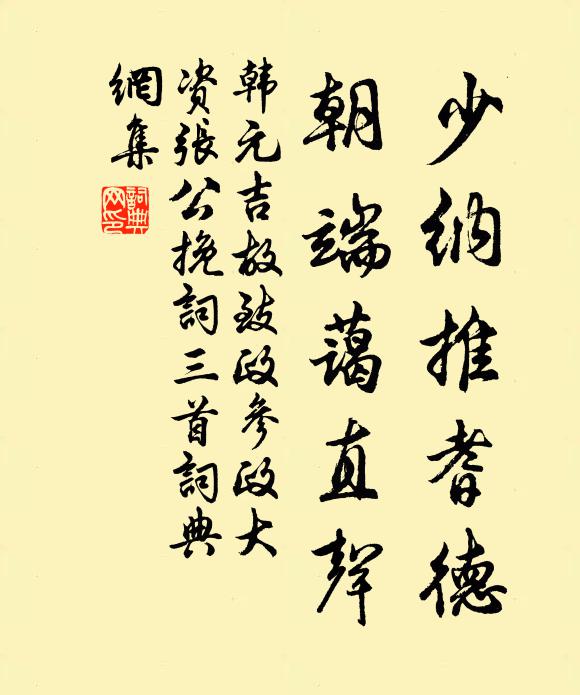 少纳推耆德
朝端蔼直聲
韩元吉故致政参政大
资張公挽詞三首詞典
網集
詞典網印